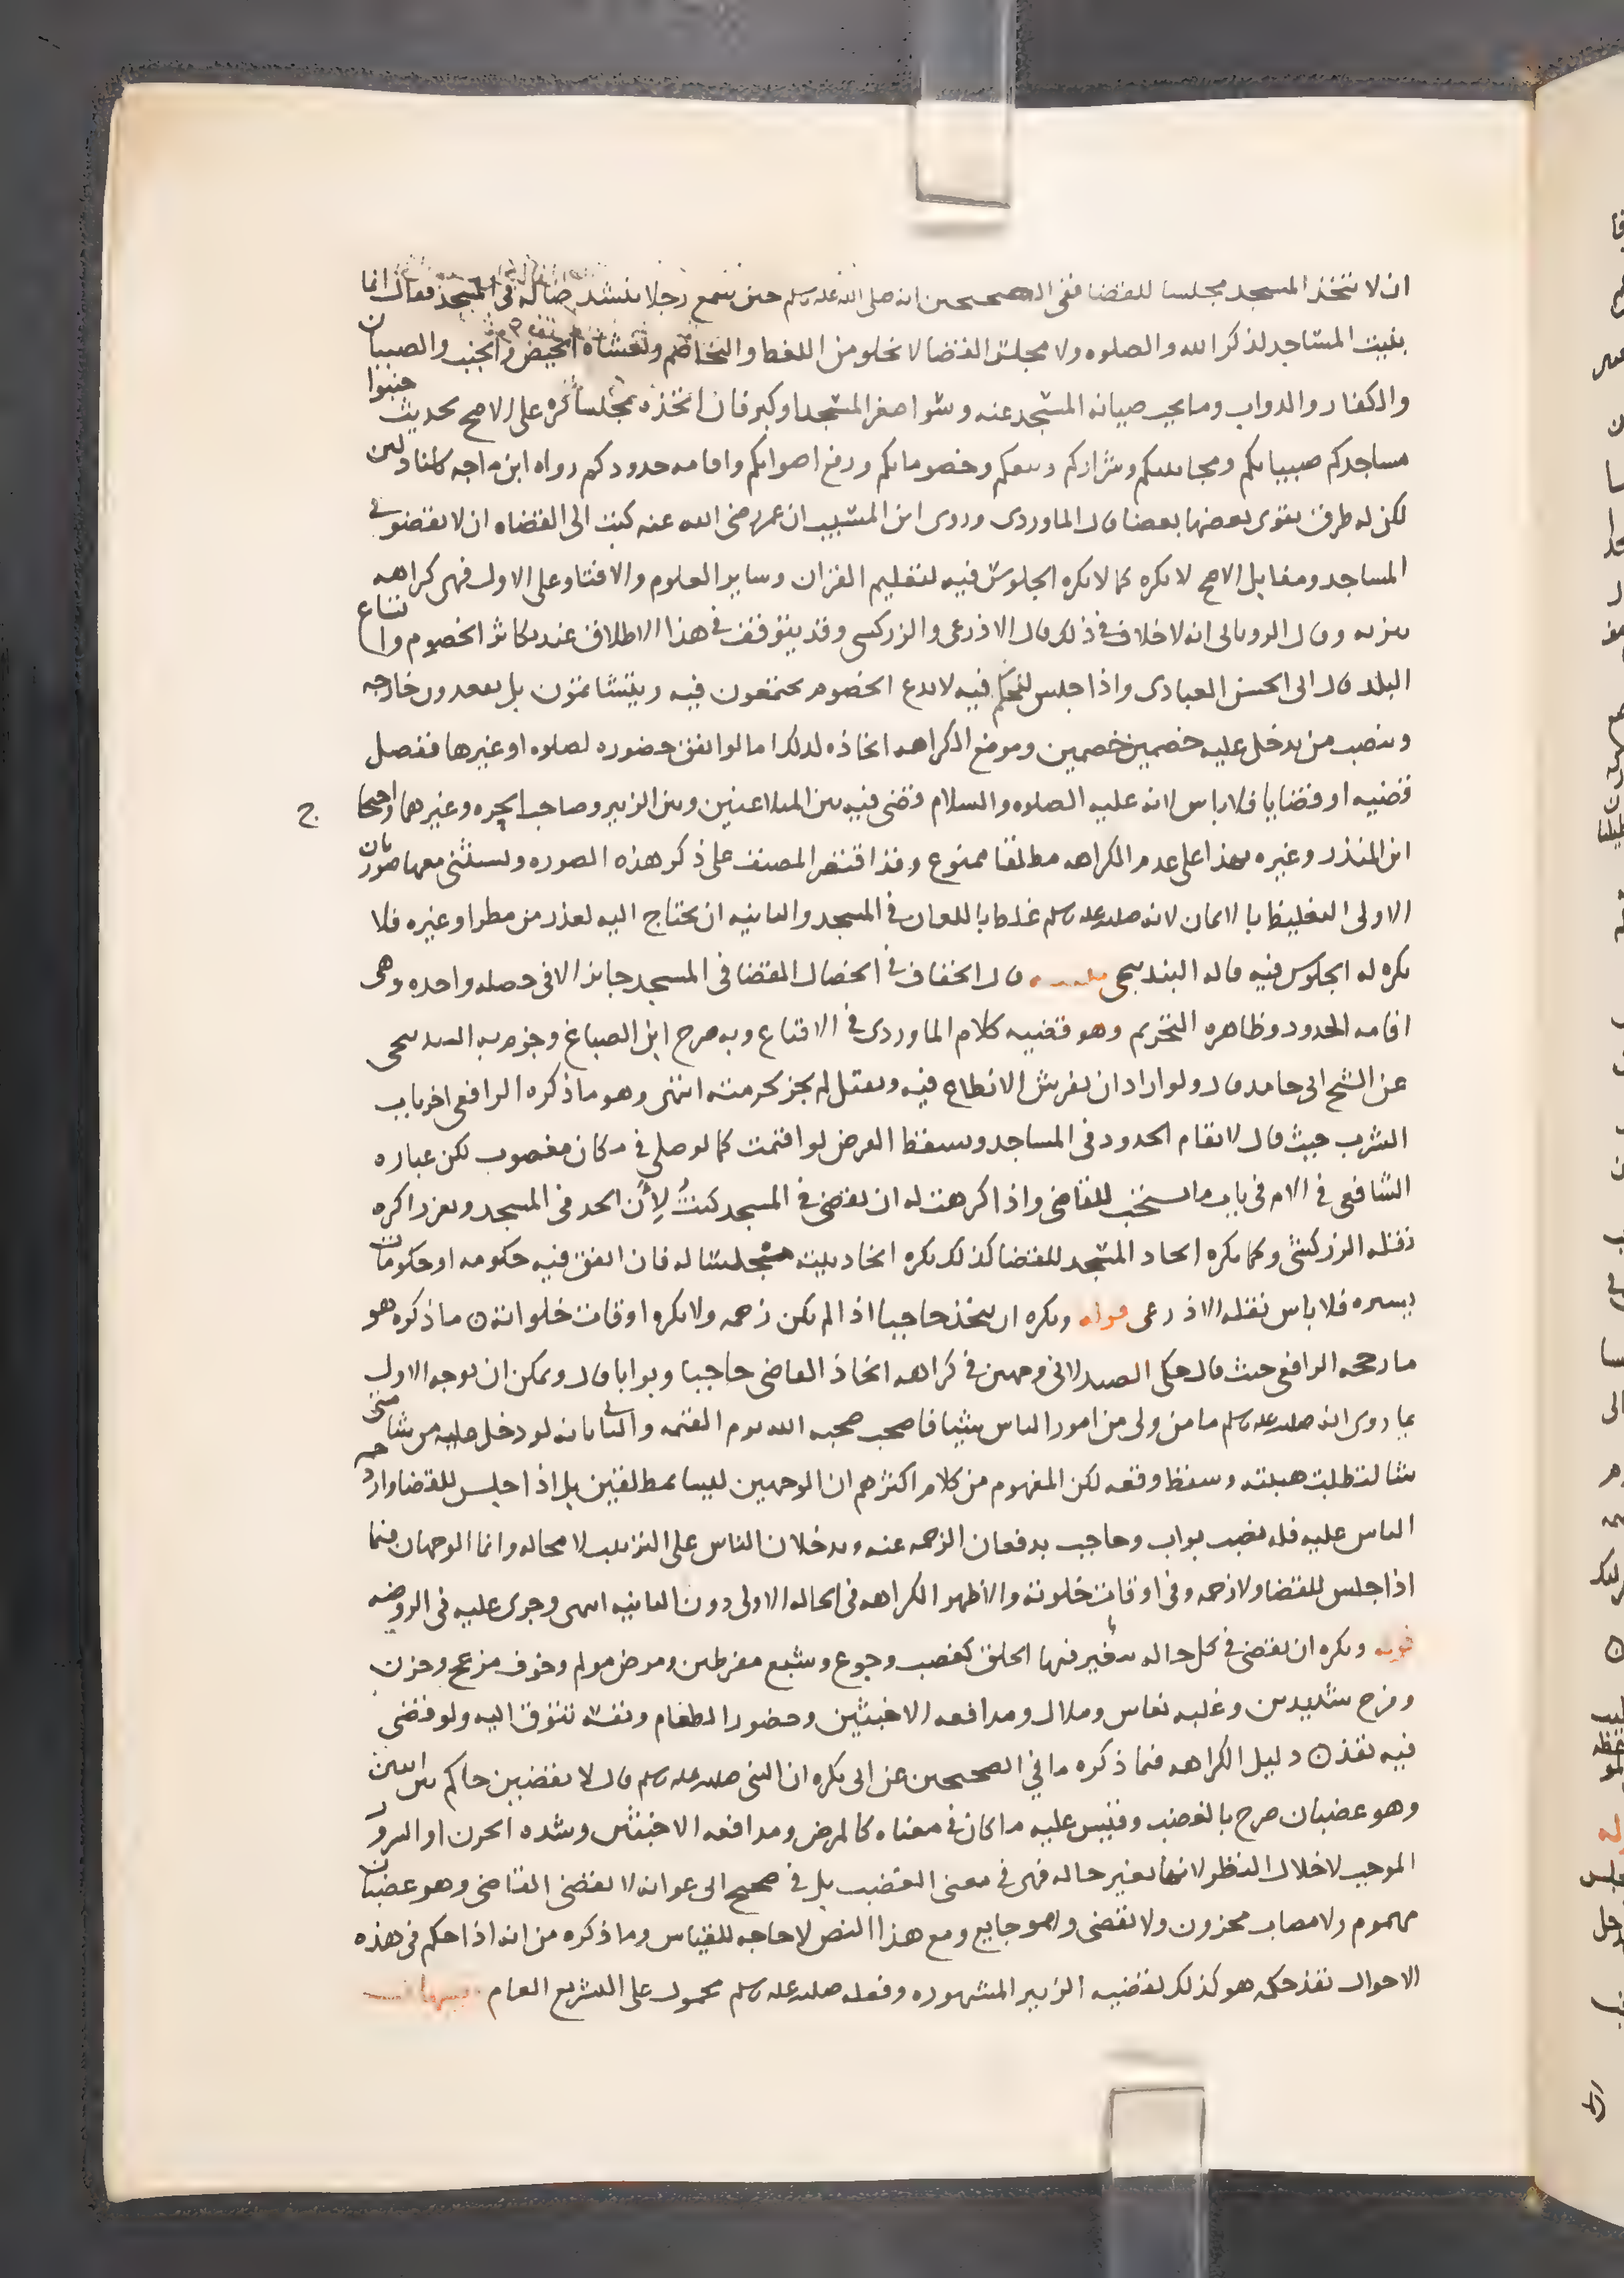 ان لا تتخذ المسجد مجلسا للقضا ففي الصحيحين انه صلى الله عليه وسلم حين سمع رجلا ينشد ضالة في المسجد فقال انما
بنيت المساجد لذكر الله والصلوه ولا مجلس القضا لا يخلو من اللغط والتخاصم ولغشاه الحيض والجنب والصبيان
والكفار والدواب وما يجب صيانه المسجد عنه وسوا صغر المسجد او كبر فان اتخذه مجلسا كره على الاصح لحديث جنبوا
مساجدكم صبيانكم ومجانينكم وشراركم وبيعكم وخصوماتكم ورفع اصواتكم واقامه حدودكم رواه ابن ماجه باسناد لين
لكن له طرق يقوى بعضها بعضا قال الماوردى وروى ابن المسيب ان عمر رضى الله عنه كتب الى القضاه ان لا تقضو في
المساجد ومقابل الاصح لا يكره كما لا يكره الجلوس فيه لتعليم القران وساير العلوم والافتا وعلى الاول فهى كراهه
تنزيه وقال الرويانى انه لا خلاف في ذلك قال الاذرعى والزركسى وقد يتوقف في هذا الاطلاق عند تكاثر الخصوم واتساع
البلد قال ابى الحسن العبادى واذا جلس للحكم فيه لا يدع الخصوم يجتمعون فيه ويتشاتمون بل يقعدون خارجه
وينصب من يدخل عليه خصمين خصمين وموضع الكراهه اتخاذه لذلك اما لو اتفق حضوره لصلوه او غيرها ففصل
قضيه او قضايا فلا باس لانه عليه الصلوه والسلام قضى فيه بين المتلاعنين وبين الزبير وصاحب الحره وغيرهما واحتجاج
ابن المنذر وغيره بهذا على عدم الكراهه مطلقا ممنوع وقد اقتصر المصنف على ذكر هذه الصوره ويستثنى معها صورتان
الاولى التغليظ بالايمان لانه صلى الله عليه وسلم غلظ باللعان في المسجد والثانيه ان يحتاج اليه لعذر من مطر او غيره فلا
يكره له الجلوس فيه قاله البندنيجى تنبيه قال الخفاف في الخصال القضا في المسجد جايز الا في خصله واحده وهى
اقامه الحدود وظاهره التحريم وهو قضيه كلام الماوردى في الاقناع وبه صرح ابن الصباغ وجزم به البندنيجى
عن الشيخ ابى حامد قال ولو اراد ان يفرش الانطاع فيه ويقتل لم يجز لحرمته انتهى وهو ما ذكره الرافعى اخر باب
الشرب حيث قال لا تقام الحدود في المساجد ويسقط الفرض لو اقيمت كما لو صلى في مكان مغصوب لكن عباره
الشافعى في الام في باب ما يستحب للقاضى واذا كرهت له ان يقضى في المسجد كنت لان الحد في المسجد ويعزر اكره
نقله الزركشى وكما يكره اتخاذ المسجد للقضا كذلك يكره اتخاذ بيته مجلسا له فان اتفق فيه حكومه او حكومات
يسيره فلا باس نقله الاذرعى قوله ويكره ان يتخذ حاجبا اذا لم يكن زحمه ولا يكره اوقات خلواته ن ما ذكره هو
ما رجحه الرافعى حيث قال حكى الصيدلانى وجهين في كراهه اتخاذ القاضى حاجبا وبوابا قال ويمكن ان يوجه الاول
بما روى انه صلى الله عليه وسلم ما من ولى من امور الناس شيئا فاحتجب حجبه الله يوم القيمه والثانى بانه لو دخل عليه من شا متى
شا لبطلت هيبته وسقط وقعه لكن المفهوم من كلام اكثرهم ان الوجهين ليسا بمطلقين بل اذا جلس للقضا وازدحم
الناس عليه فله نصب بواب وحاجب يدفعان الزحمه عنه ويدخلان الناس على الترتيب لا محاله وانما الوجهان فيما
اذا جلس للقضا ولا زحمه وفي اوقات خلوته والاظهر الكراهه في الحاله الاولى دون الثانيه انتهى وجرى عليه في الروضه
قوله ويكره ان يقضى في كل حاله يتغير فيها الخلق كغضب وجوع وشبع مفرطين ومرض مولم وخوف مزعج وحزن
وفرح شديدين وغلبه نعاس وملال ومدافعه الاخبثين وحضور الطعام ونفسه تتوق اليه ولو قضى
فيه نفذ ن دليل الكراهه فيما ذكره ما في الصحيحين عن ابى بكره ان النبى صلى الله عليه وسلم قال لا يقضين حاكم بين اثنين
وهو غضبان صرح بالغضب وقيس عليه ما كان في معناه كالمرض ومدافعه الاخبثين وشده الحزن او السرور
الموجب لاخلال النظر لانها تغير حاله فهى في معنى الغضب بل في صحيح ابى عوانه لا يقضى القاضى وهو غضبان
مهموم ولا مصاب محزون ولا يقضى وهو جايع ومع هذا النص لا حاجه للقياس وما ذكره من انه اذا حكم في هذه
الاحوال نفذ حكمه هو كذلك لقضيه الزبير المشهوره وفعله صلى الله عليه وسلم محمول على التشريع العام